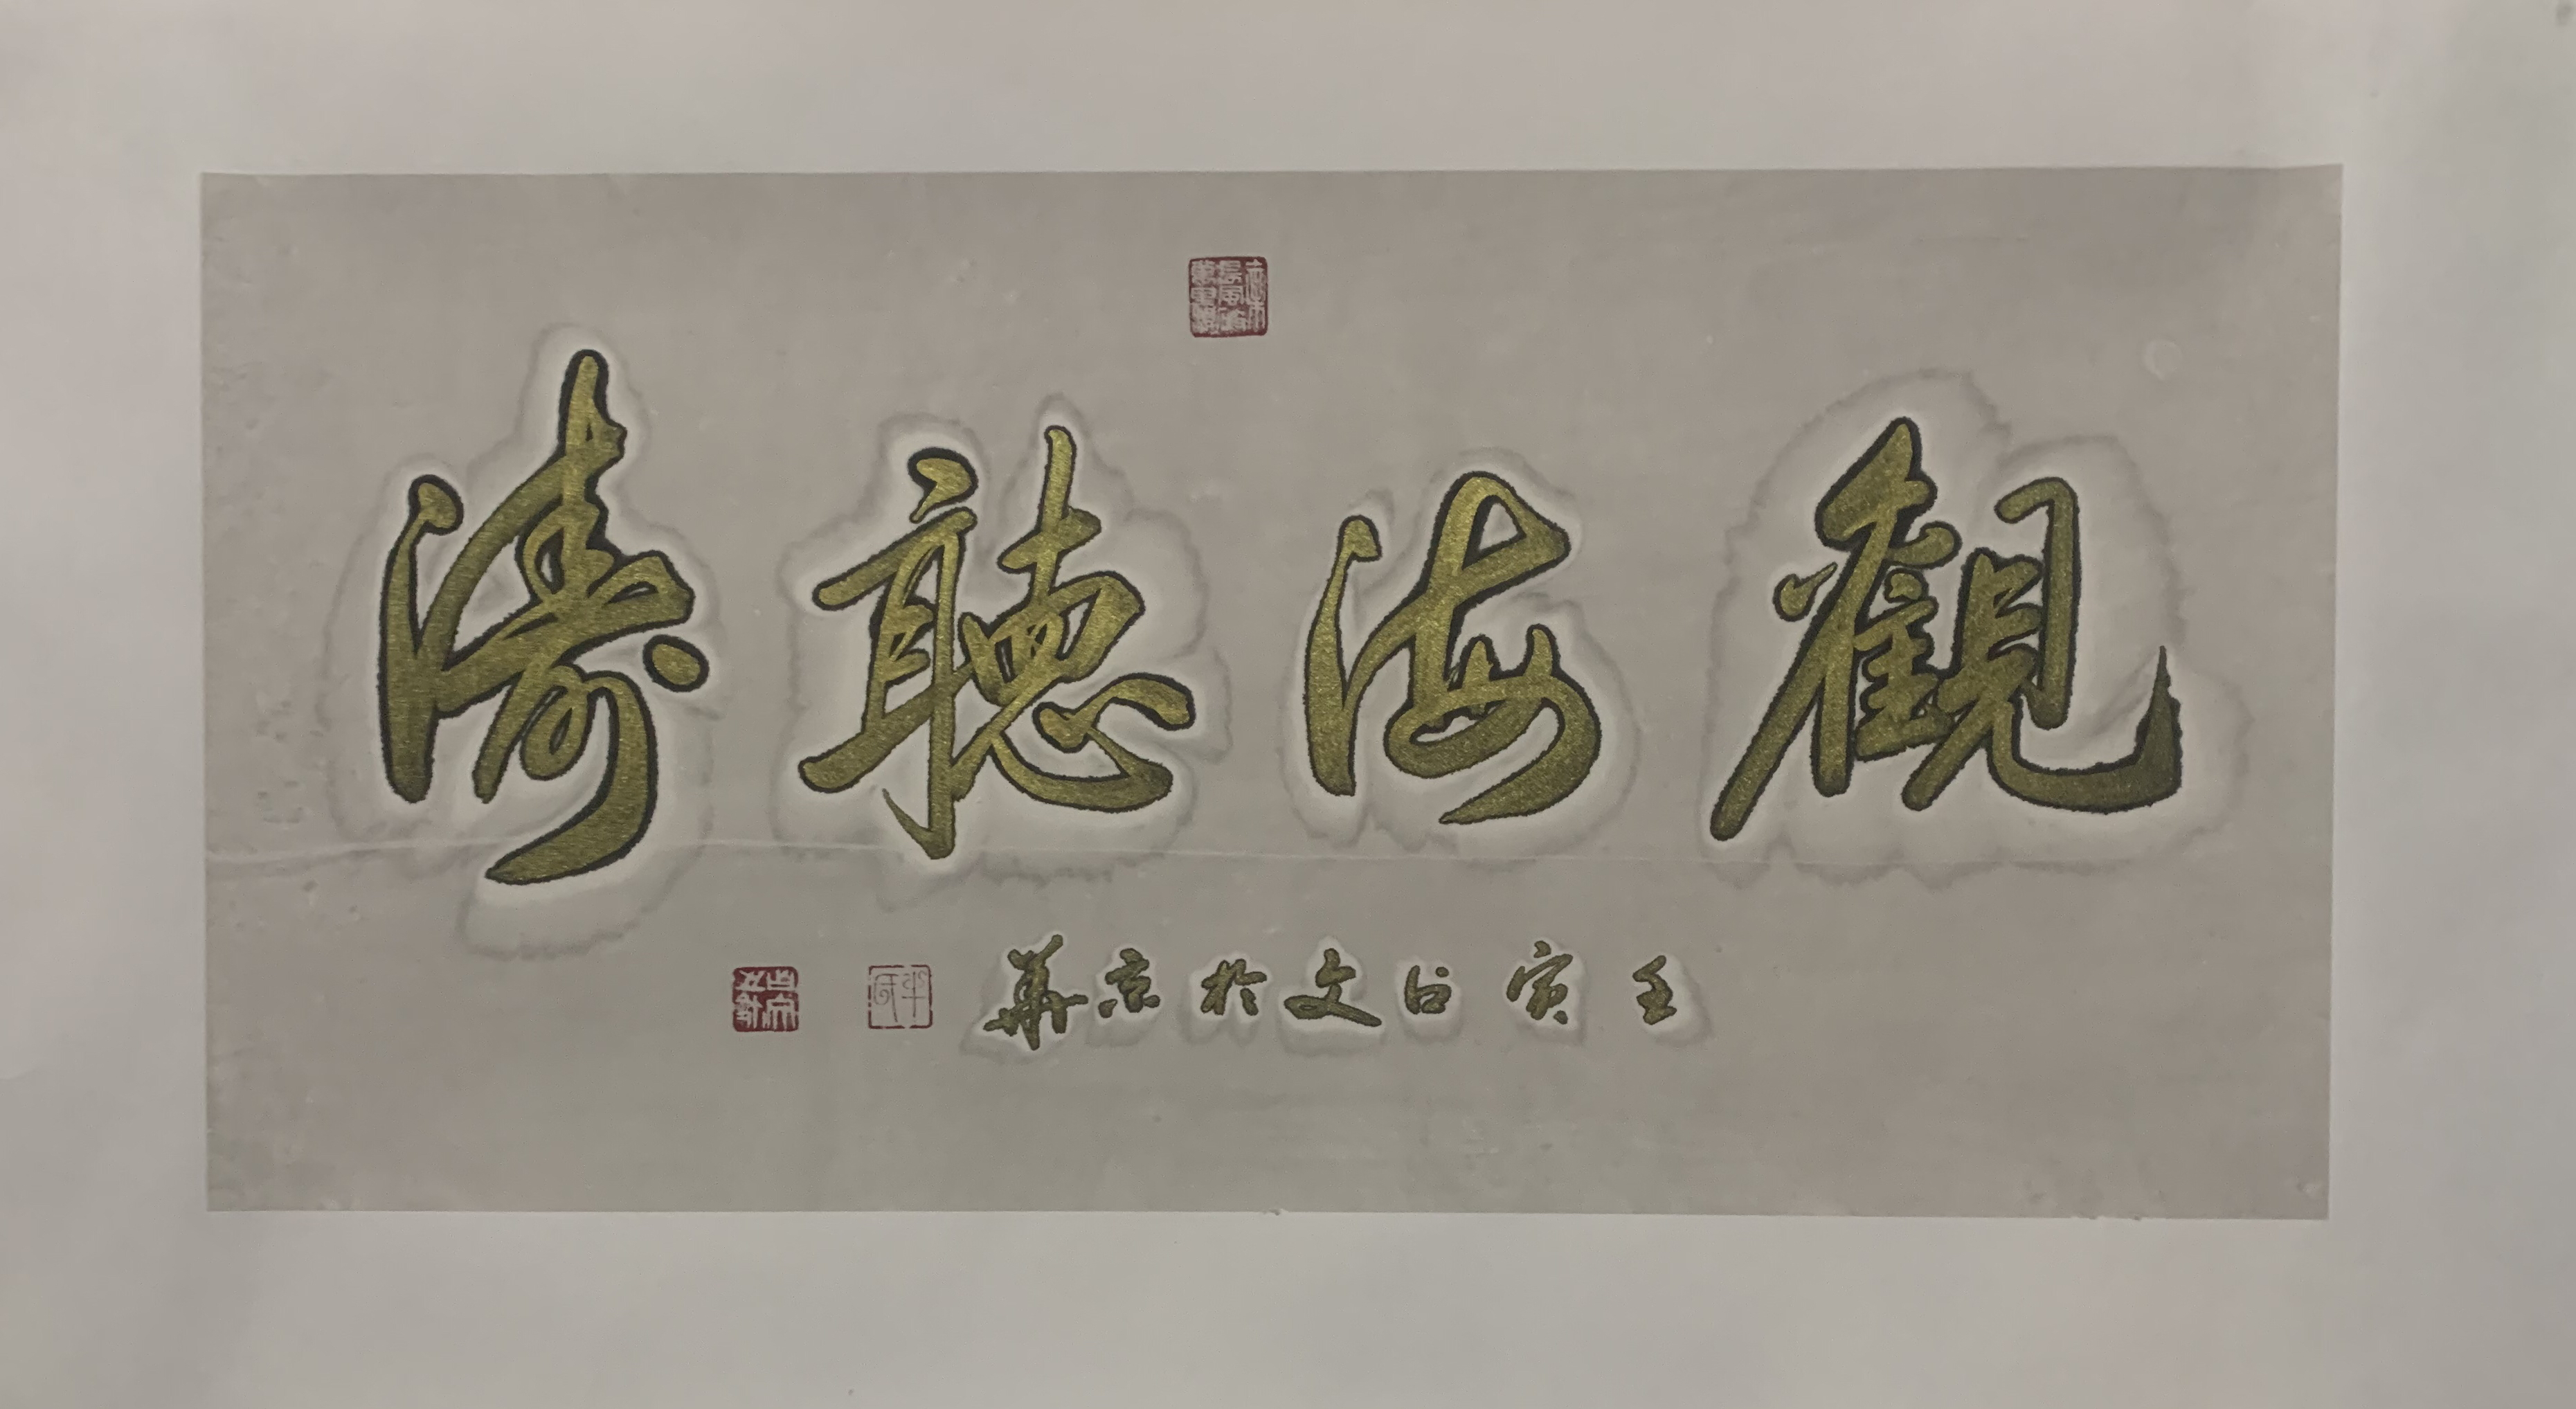 觀海聽濤
壬寅占文於京華